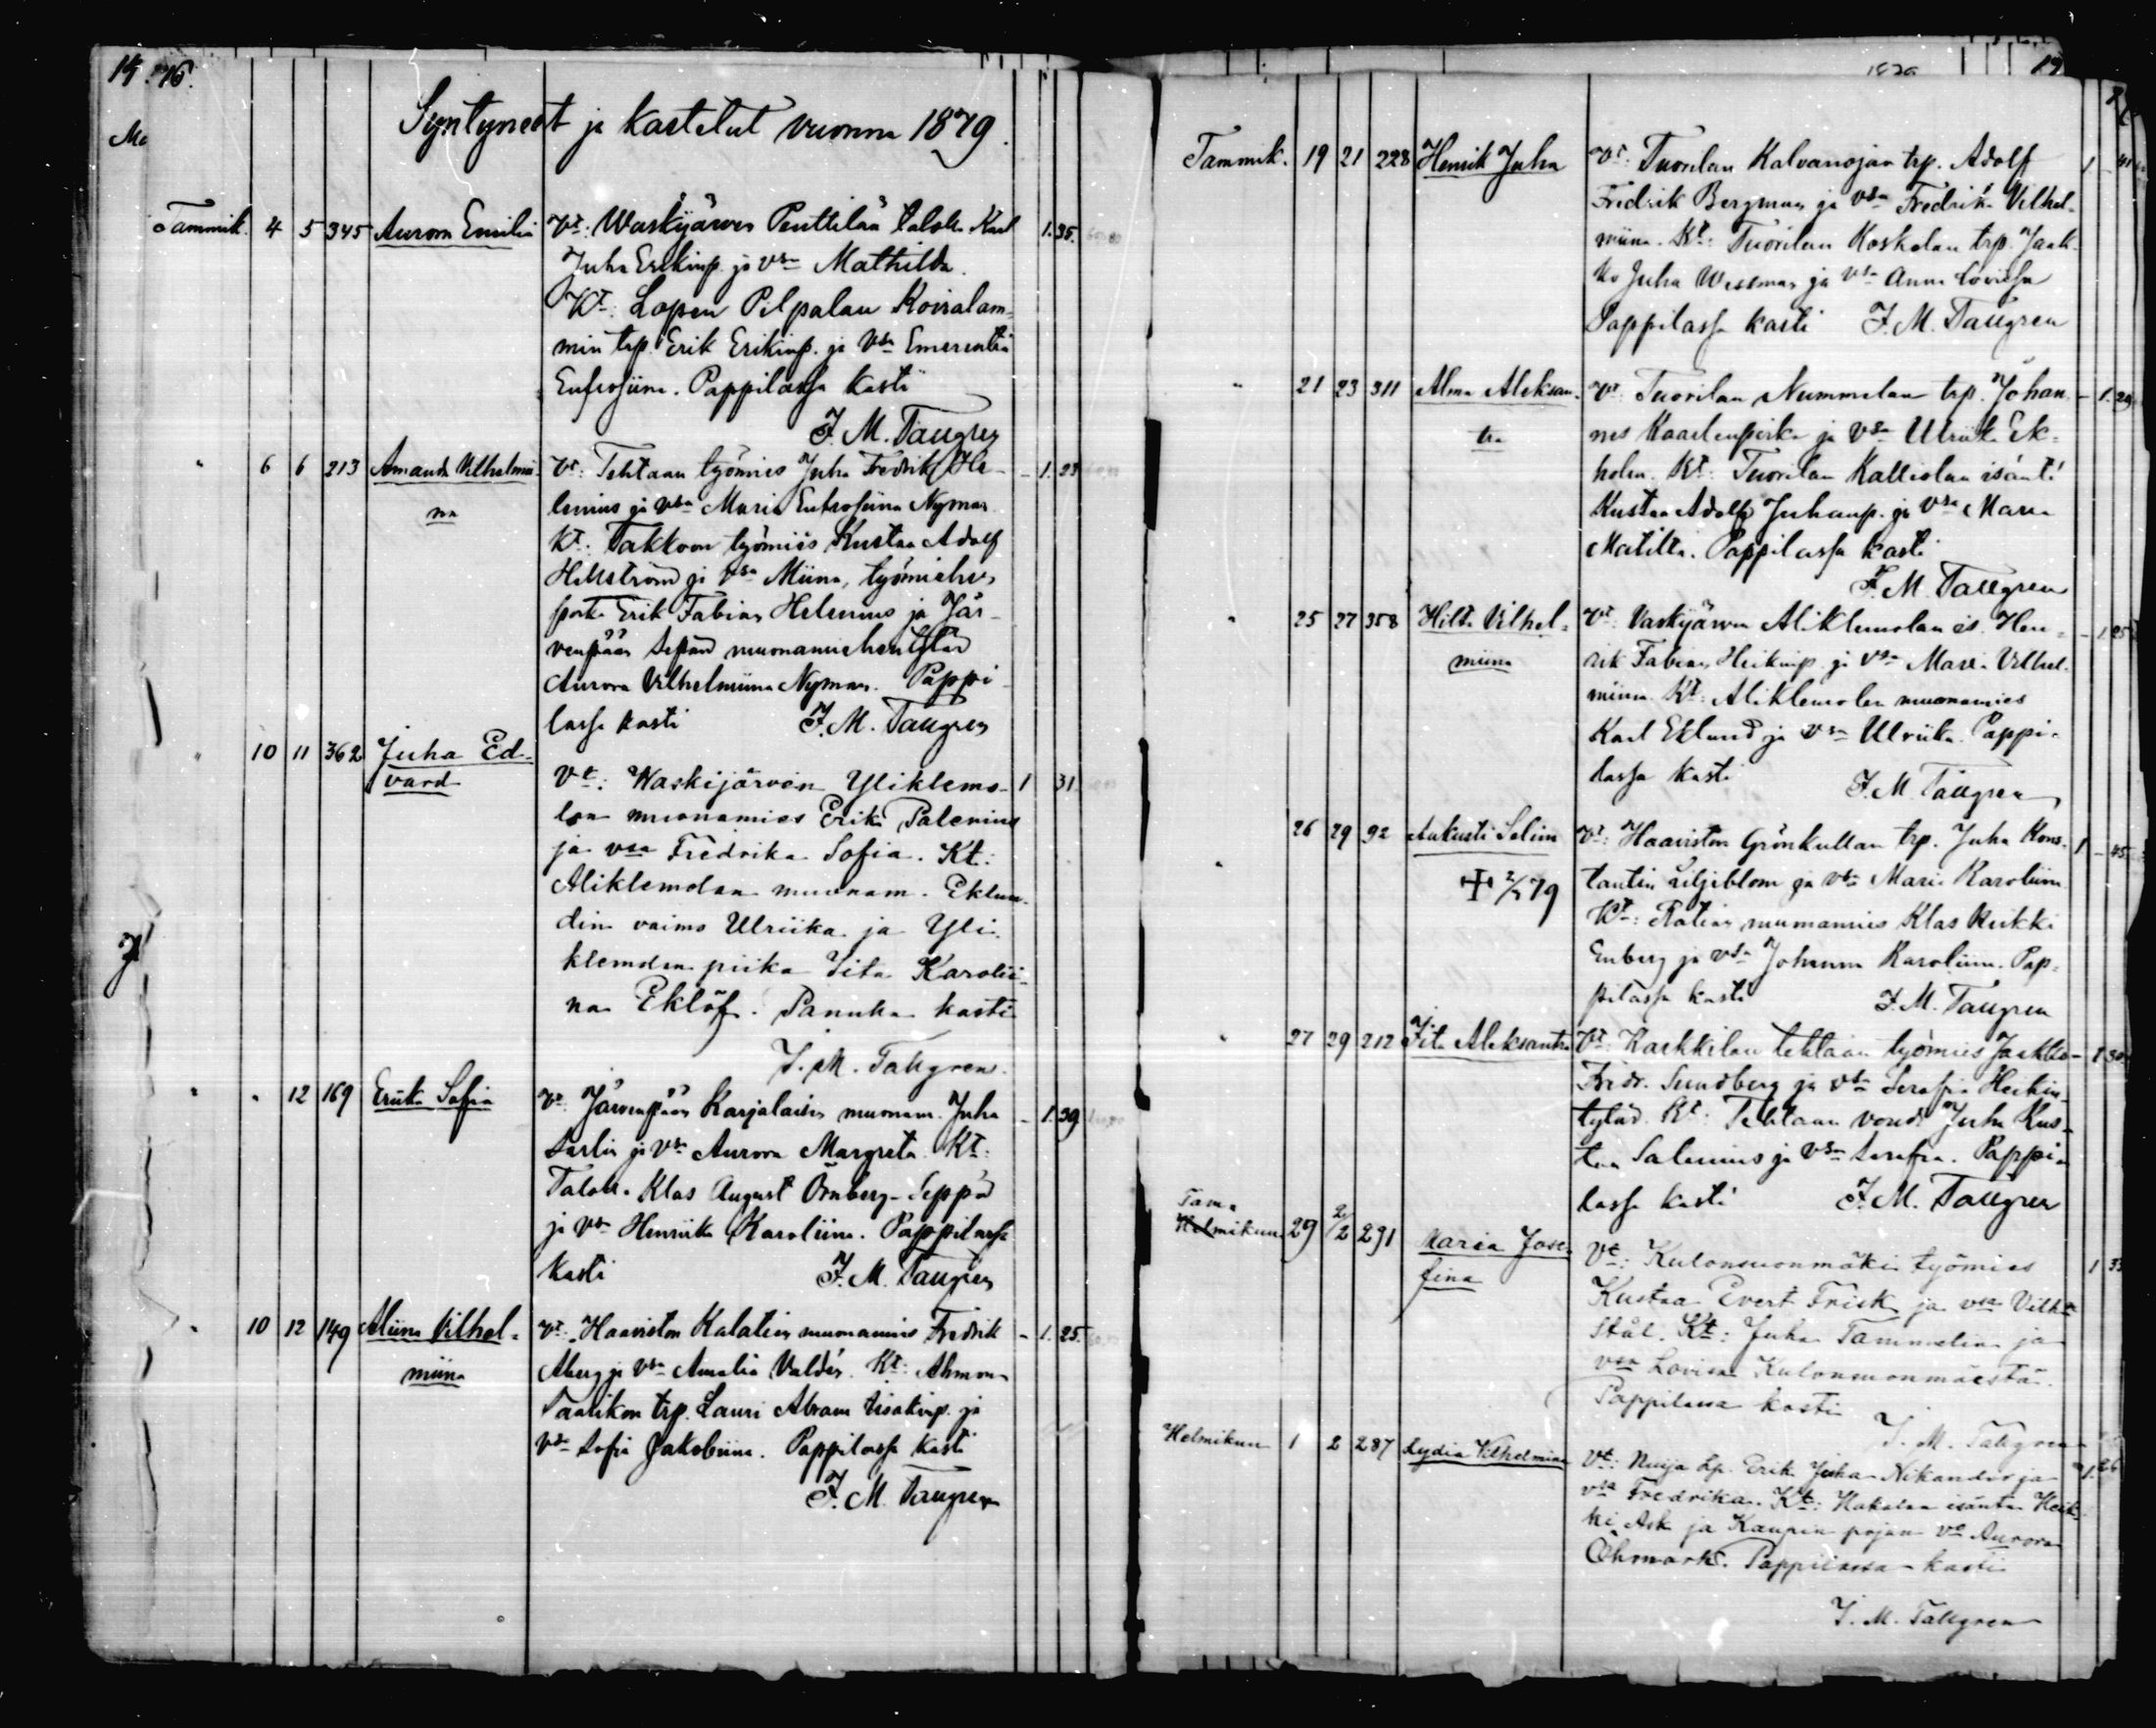 Syntyneet ja kastetut vuonna 1879.
Tammik. 4 5 345 Aurora Emilia Vt: Waskijärven Penttilän talok. Karl 1. 35.
Juha Erikinp. ja vsa Mathilda.
Kt: Lopen Pilpalan Koiralam-
min trp. Erik Erikinp. ja Vsa Emerentia
Eufrosiina. Pappilassa kasti
F. M. Tallgren
" 6 6 213 Amanda Vilhelmii- Vt: Tehtaan työmies Juha Fredrik He- - 1. 23
na lenius ja vsa Maria Eufrosiina Nyman
Kt: Takkoon työmies Kustaa Adolf
Hellström ja vsa Miina, työmiehen
poika Erik Fabian Helenius ja Jär-
venpään Sepän muonamiehen tytär
Aurora Vilhelmiina Nyman. Pappi-
lassa kasti F. M. Tallgren
" 10 11 362 Juha Ed-
vard Vt: Waskijärven Yliklemo- 1 31
lan muonamies Erik Palenius
ja vsa Fredrika Sofia. Kt:
Aliklemolan muonam. Eklun-
din vaimo Ulriika ja Yli-
klemolan piika Iita Karolii-
na Eklöf. Panuha kasti
F. M. Tallgren.
" " 12 169 Eriika Sofia Vt: Järvenpään Karjalaisen muonam. Juha - 1. 39
Sarlin ja Vsa Aurora Margreta. Kt:
Talok. Klas August Örnberg-Seppä
ja vsa Henriika Karoliina. Pappilassa
kasti F. M. Tallgren
" 10 12 149 Miina Vilhel- Vt: Haaviston Kalatien muonamies Fredrik - 1. 25.
miina Åberg ja vsa Amalia Valdén. Kt: Ahmoon
trp. Lauri Abram Iisakinp. ja
vsa Sofia Jakobiina. Pappilassa kasti
F. M. Tallgren
Tammik. 19 21 228 Henrik Juha Vt: Tuorilan Kalvanojan trp. Adolf 1 41
Fredrik Bergman ja vsa Fredrika Vilhel-
miina. Kt: Tuorilan Koskelan trp. Jaak-
ko Juha Weseman ja vsa Anna Loviisa
Pappilassa kasti F. M. Tallgren
" 21 23 311 Alma Aleksan- Vt: Tuorilan Nummelan trp. Johan- - 1. 29
tra nes Kaarlenpoika ja vsa Ulriika Ek-
holm. Kt: Tuorilan Kalliolan isäntä
Kustaa Adolf Juhanp. ja vsa Maria
Matilta. Pappilassa kasti
F. M. Tallgren
" 25 27 358 Hilta Vilhel- Vt: Vaskijärven Aliklemolan is. Hen- - 1 25
miina rik Fabian Heikinp. ja vsa Maria Vilhel-
miina. Kt: Aliklemolan muonamies
Karl Eklund ja vsa Ulriika. Pappi-
lassa kasti F. M. Tallgren
" 26 29 92 Aukusti Selim Vt: Haaviston Grönkullan trp. Juha Kons- 1 - 45
✝ 2/2 79 tantin Liljeblom ja vsa Maria Karoliina
Kt: muonamies Klas Heikki
Enberg ja vsa Johanna Karoliina. Pap-
pilassa kasti F. M. Tallgren
" 27 29 212 Iita Aleksantra Vt: Karkkilan tehtaan työmies Jaakko - 1 30
Fredr. Sundberg ja vsa Serafia Heikin-
tytär. Kt: Tehtaan vouti Juha Kus-
taa Salenius ja vsa Serafia. Pappi-
lassa kasti F. M. Tallgren
Tam.
Helmikuu 29 2/2 291 Maria Jose-
fina Vt: Kulonsuonmäki työmies 1 33
Kustaa Evert Frisk ja vsa Vilh:
Stål. Kt: Juha Tammelin ja
vsa Lovisa Kulonsuonmäestä.
Pappilassa kasti
F. M. Tallgren
Helmikuu 1 2 287 Lydia Vilhelmina Vt: Nuija Lp. Erik Juha Nikander ja " 1. 26
vsa Fredrika. Kt: Hakalan isäntä Heik-
ki Ask ja Kaupin pojan vo Aurora
Öhrnark. Pappilassa kasti
F. M. Tallgren